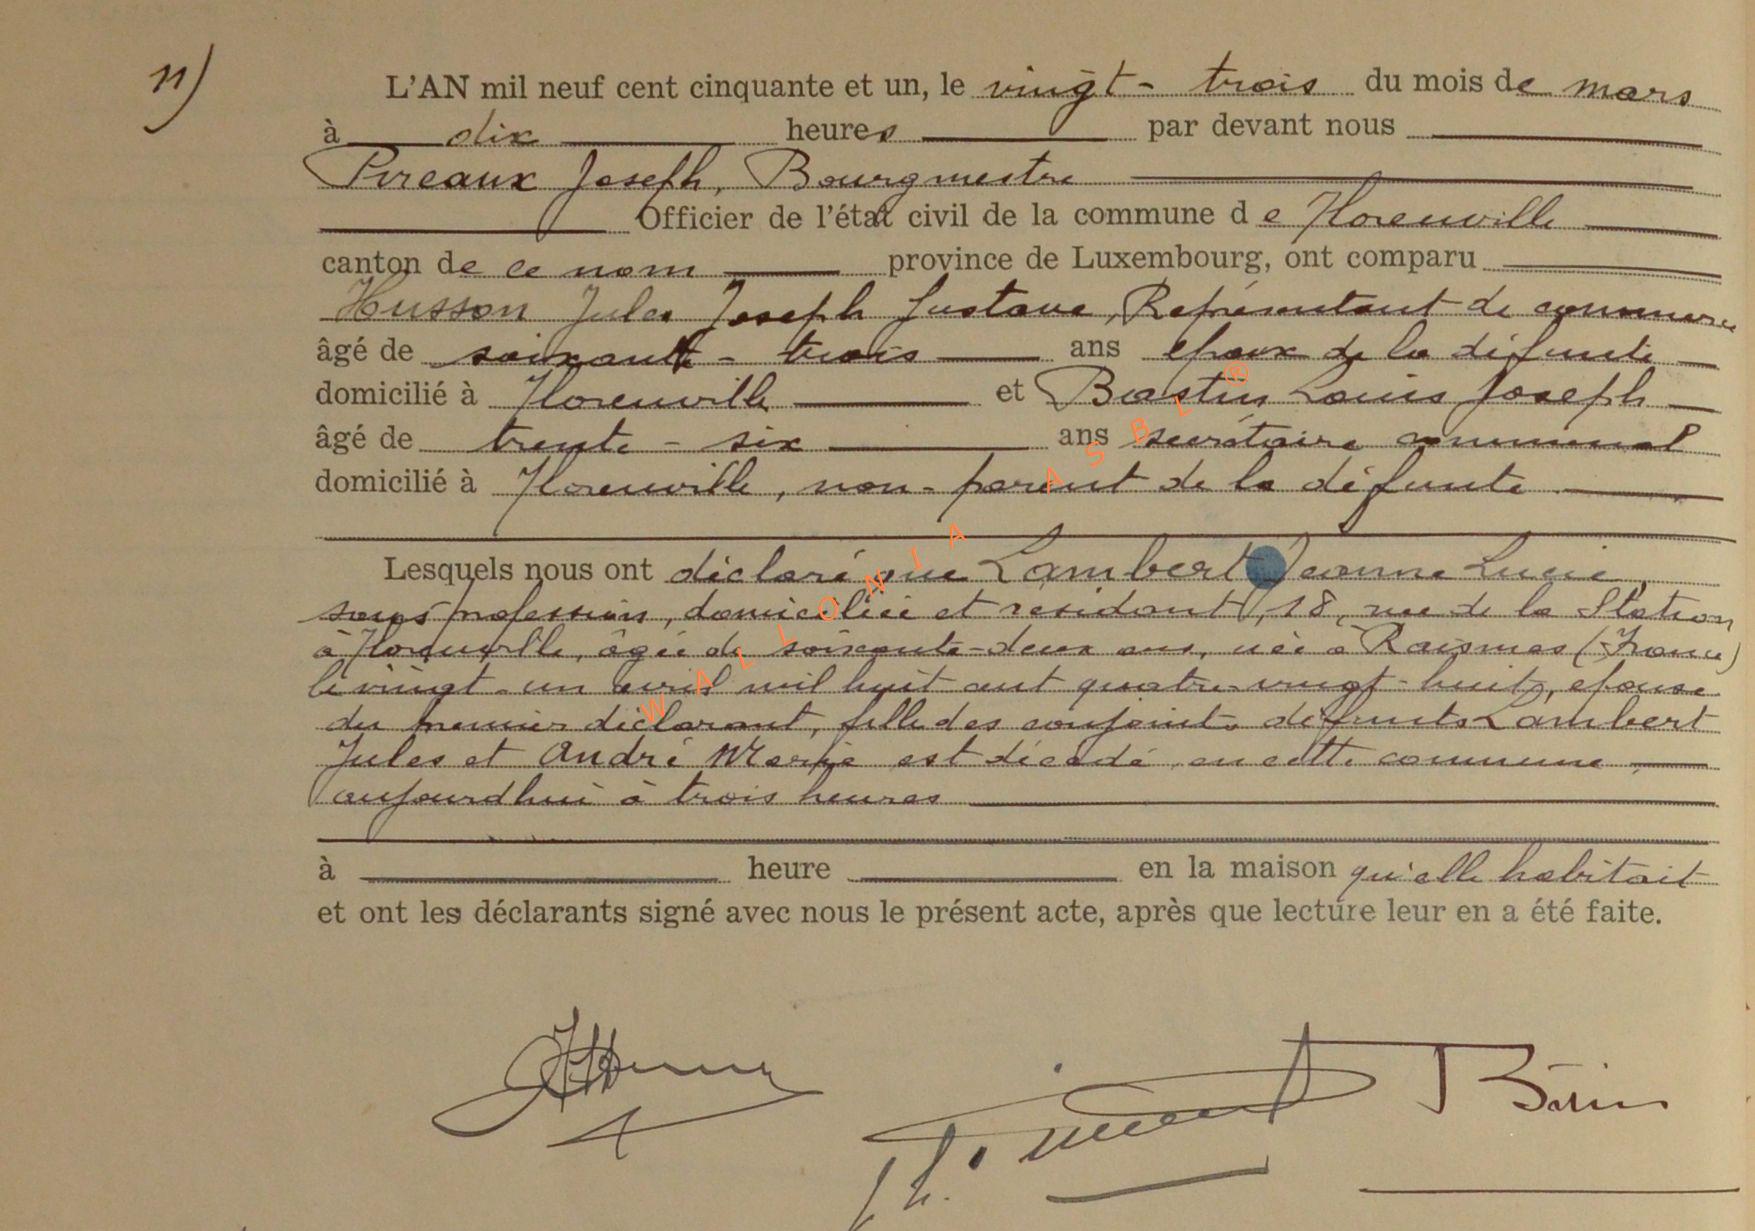 11)
L'AN mil neuf cent cinquante et un, le vingt-trois du mois de mars
à dix heures par devant nous
Pireaux Joseph, Bourgmestre
Officier de l'état civil de la commune de Florenville
canton de ce nom province de Luxembourg, ont comparu
Husson Jules Joseph Gustave, Représentant de commerce
âgé de soixante-trois ans époux de la défunte
domicilié à Florenville et Bastin Louis Joseph
âgé de trente-six ans secrétaire communal
domicilié à Florenville, non-parent de la défunte
Lesquels nous ont déclaré que Lambert Jeanne Lucie,
sans profession, domiciliée et résidant, 18, rue de la Station
à Florenville, âgée de soixante-deux ans, née à Raismes (France)
le vingt-un avril mil huit cent quatre-vingt-huit, épouse
du premier déclarant, fille des conjoints défunts Lambert
Jules et André Marie est décédé en cette commune
aujourd'hui à trois heures
à heure en la maison qu'elle habitait
et ont les déclarants signé avec nous le présent acte, après que lecture leur en a été faite.
WALLONIA ASBL ®